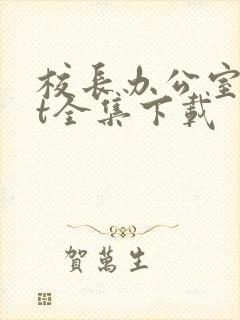 校长办公室
t全集下载
賀萬生